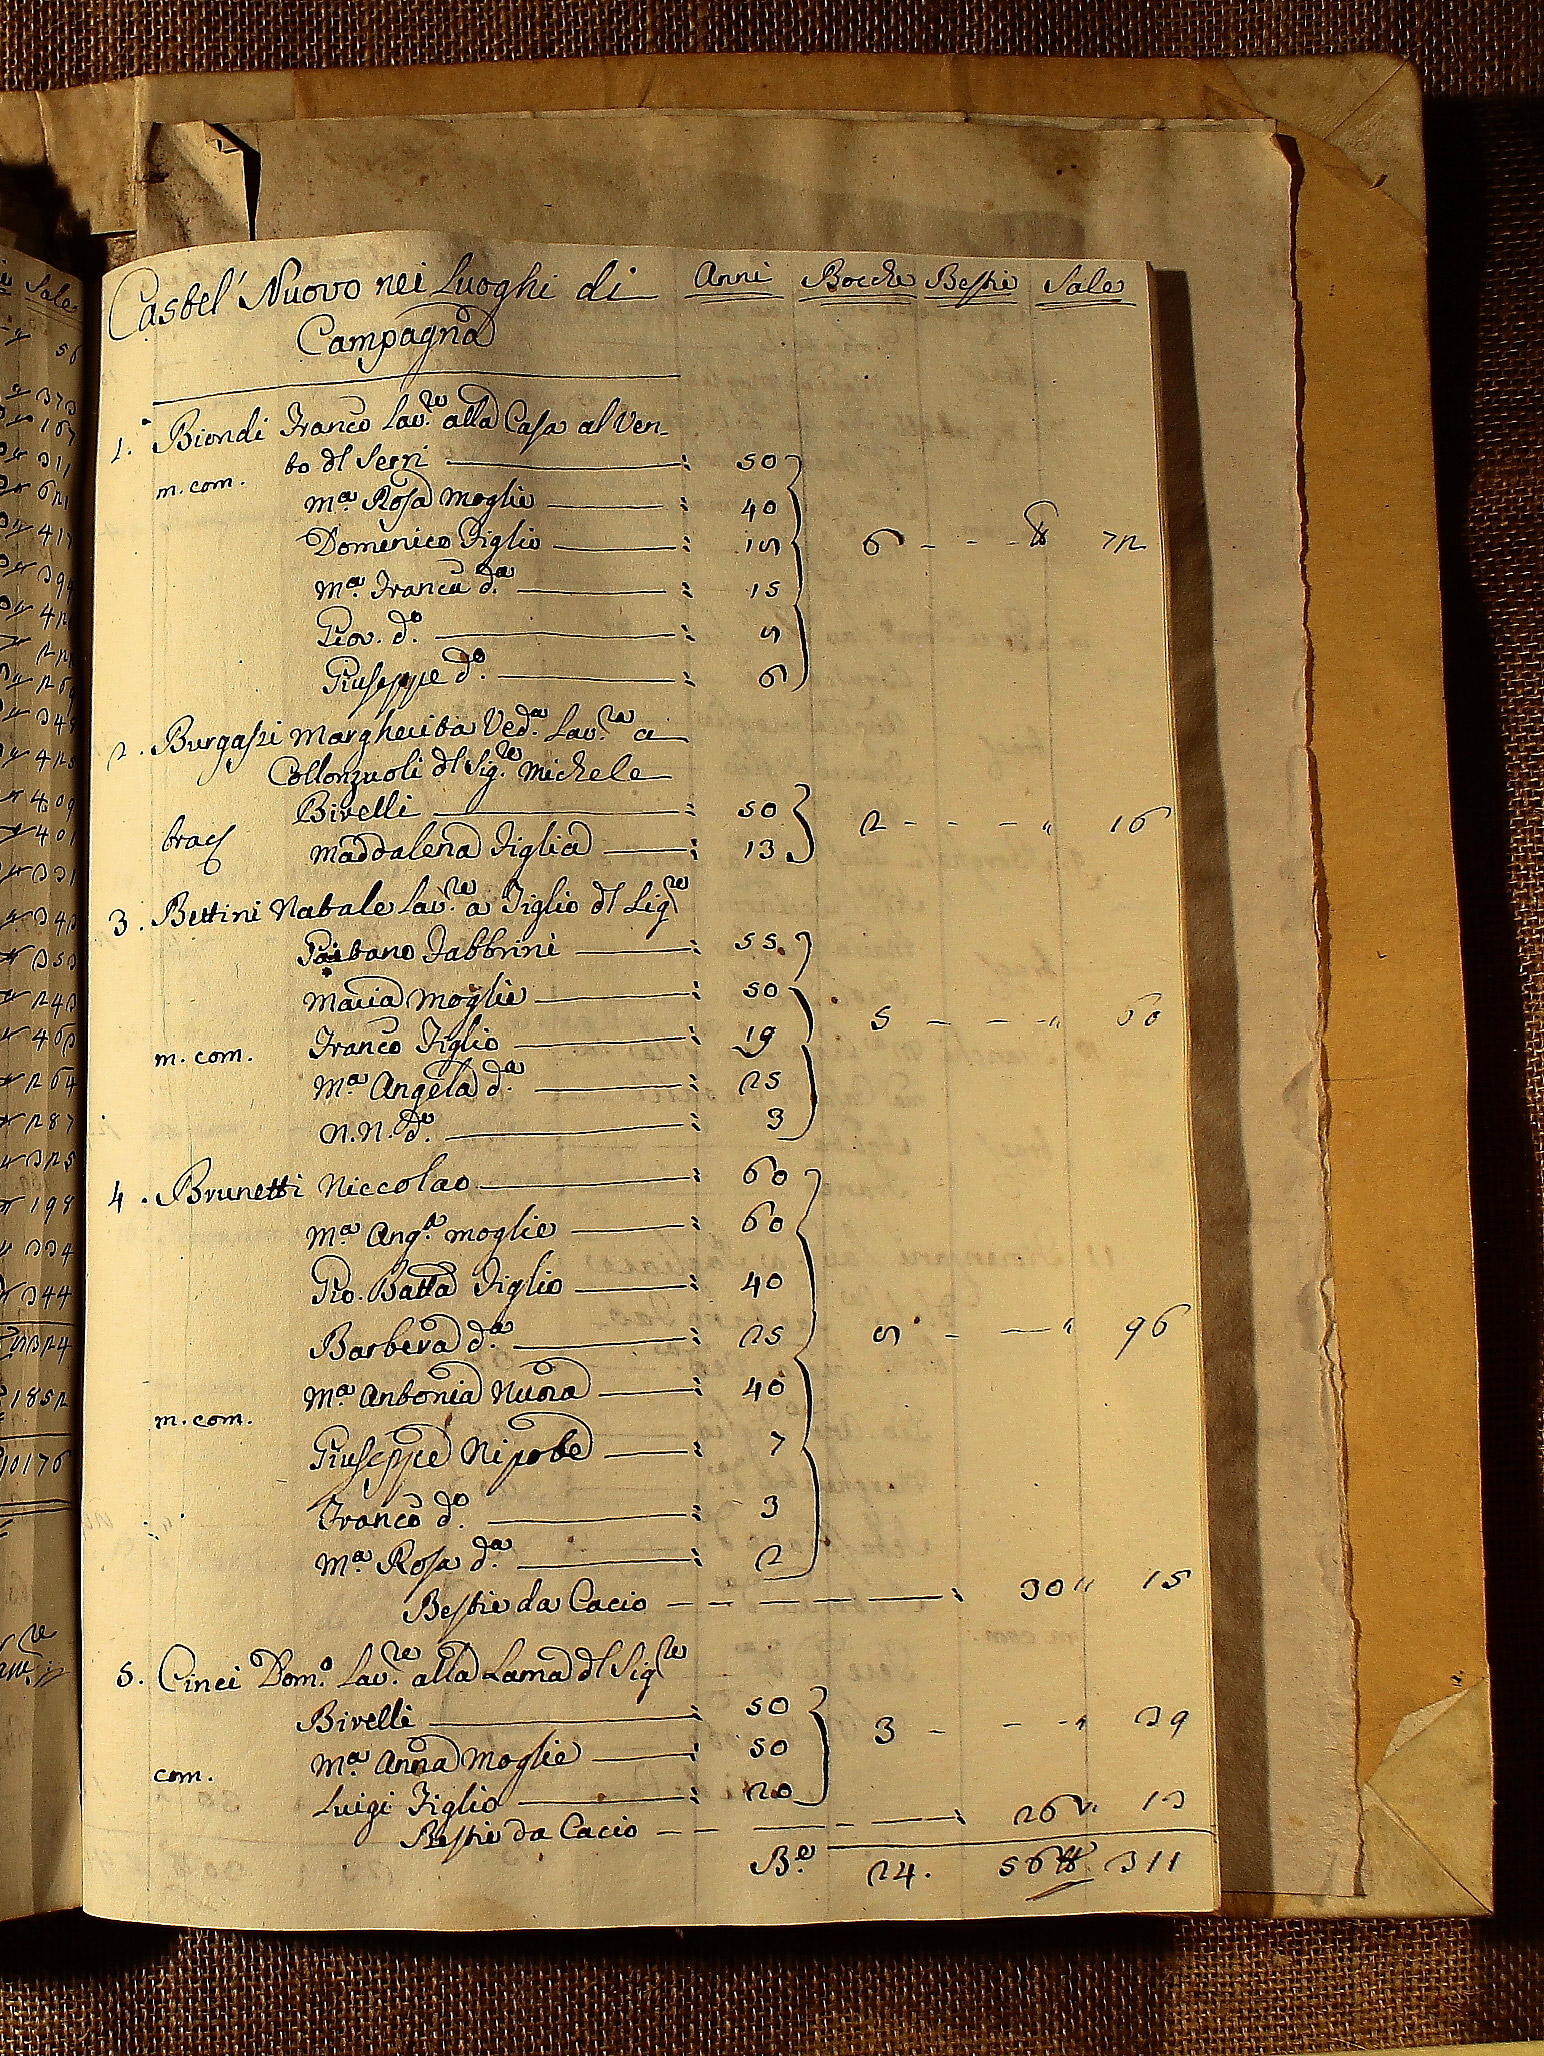 Castel' Nuovo nei Luoghi di Anni Bocche Bestie Sale
Campagna
1. Biondi Franco Lav.re alla Casa al Ven-
to dl Serri 50
m. com.
Ma. Rosa Moglie 40
Domenico Figlio 18 6 - - - ℔ 72
Ma. Franca da. 15
Giov. do. 8
Giuseppe do. 6
2. Burgassi Margherita Ved.a Lav.re a
Collonzuoli dl Sig.re Michele
Bivelli 50 2 - - - " 16
brac
Maddalena Figlia 13
3. Bettini Natale Lav.re a Figlio dl Sigre
Gaetano Fabbrini 55.
Maria Moglie 50
Franco Figlio 19 5 - - - " 60
m. com.
Ma. Angela da. 25
N.N. do. 3
4. Brunetti Niccolao 60
Ma. Ang.a moglie 60
Gio. Batta Figlio 40
Barbera da. 25 8 - - - " 96
Ma. Antonia Nuora 40
m. com.
Giuseppe Nipote 7
Franco do. 3
Ma. Rosa da. 2
Bestie da Cacio 30 " 15
5. Cinci Dom.o Lav.re alla Lama dl Sigre
Bivelli 50
Ma. Anna Moglie 50 3 - - - " 39
com.
Luigi Figlio 20
Bestie da Cacio 26 " 13
B.e 24. 56 ℔ 311